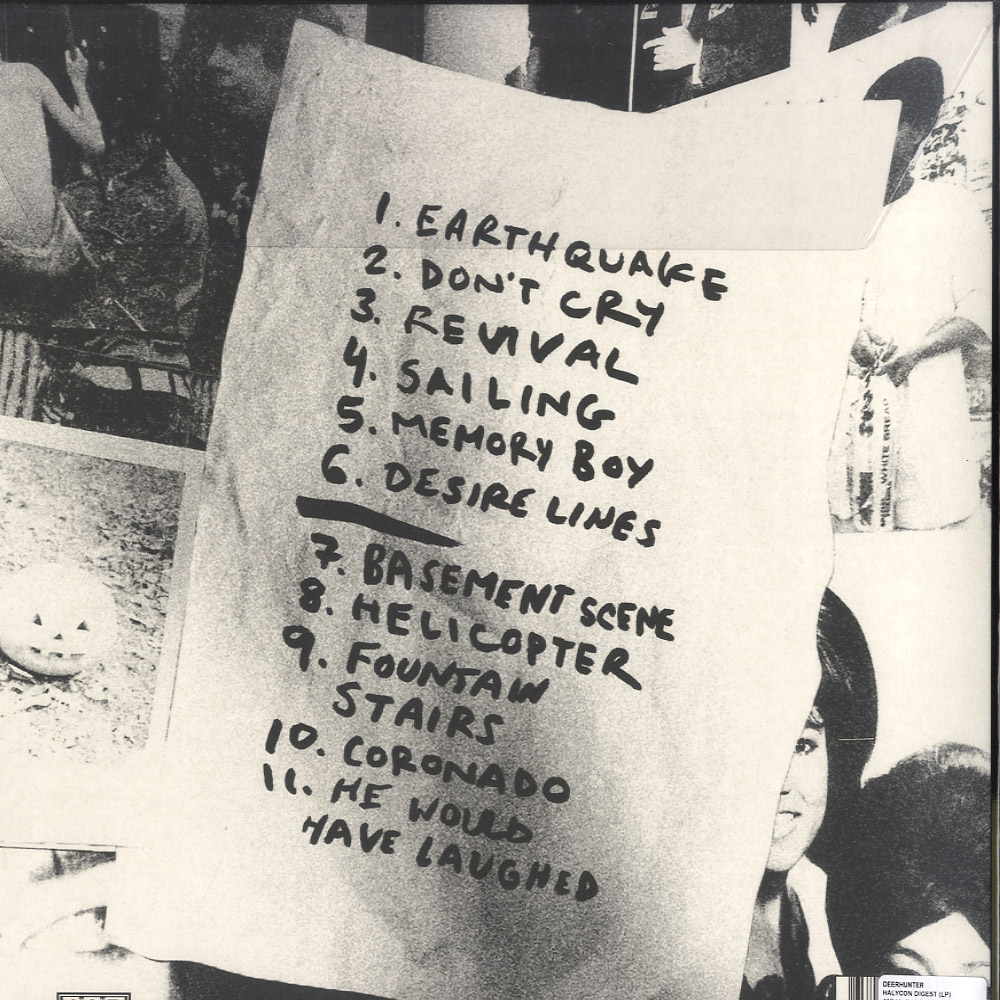 1. EARTHQUAKE
2. DON'T CRY
3. REVIVAL
4. SAILING
5. MEMORY BOY
6. DESIRE LINES
7. BASEMENT SCENE
8. HELICOPTER
9. FOUNTAIN
STAIRS
10. CORONADO
11. HE WOULD
HAVE LAUGHED
WHITE BREAD
DEERHUNTER
HALYCON DIGEST (LP)